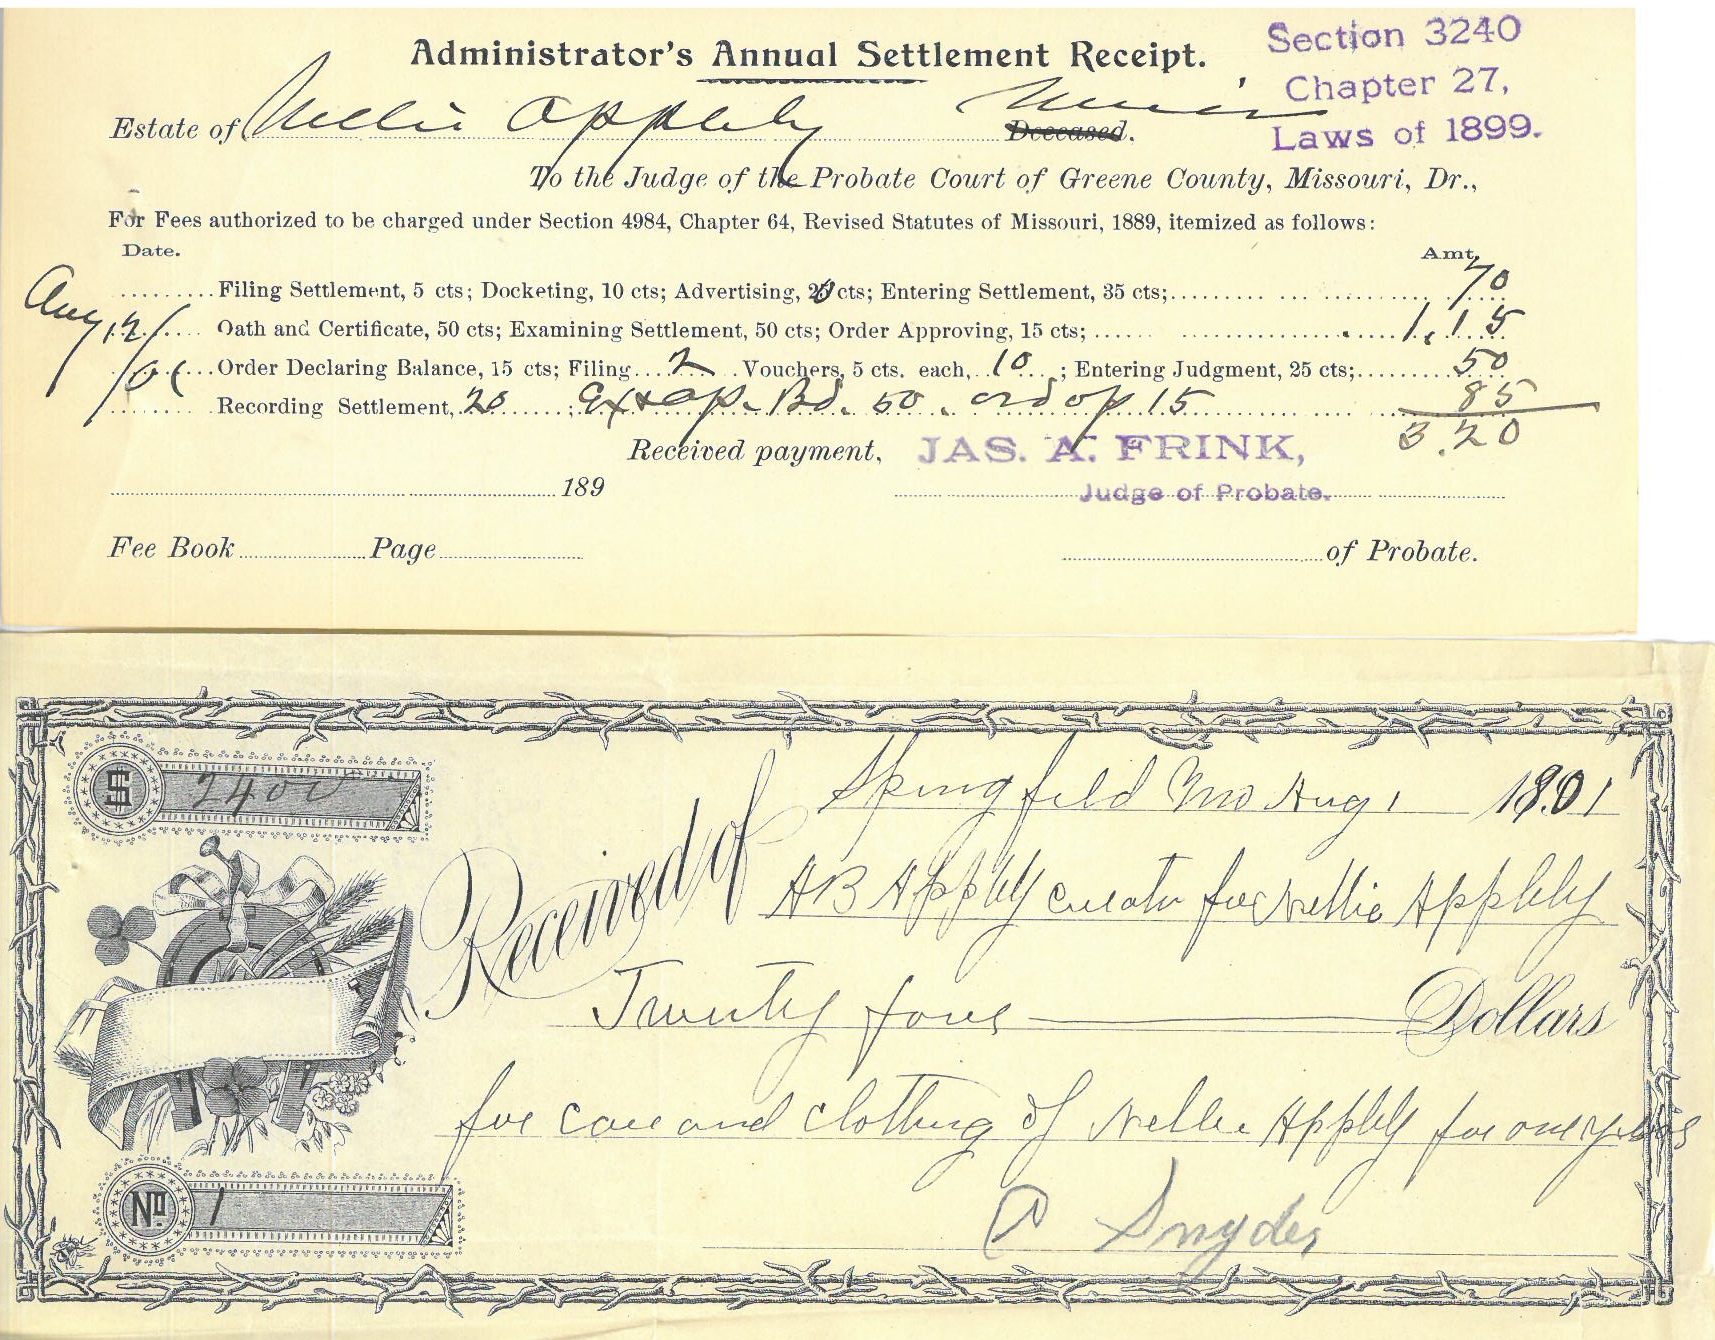 Administrator's Annual Settlement Receipt.
Section 3240
Chapter 27,
Laws of 1899.
Estate of Nellie Appleby Minor Deceased.
To the Judge of the Probate Court of Greene County, Missouri, Dr.,
For Fees authorized to be charged under Section 4984, Chapter 64, Revised Statutes of Missouri, 1889, itemized as follows:
Date. Amt.
Filing Settlement, 5 cts; Docketing, 10 cts; Advertising, 20 cts; Entering Settlement, 35 cts; 70
Aug 12/ Oath and Certificate, 50 cts; Examining Settlement, 50 cts; Order Approving, 15 cts; 1.15
/01 Order Declaring Balance, 15 cts; Filing 2 Vouchers, 5 cts. each, 10; Entering Judgment, 25 cts; 50
Recording Settlement, 20; Ex & ap. Bd. 50. ord ap 15 85
3.20
Received payment, JAS. A. FRINK,
189 Judge of Probate.
Fee Book Page of Probate.
$ 2400
Springfield Mo Aug 1 1901
Received of AB Appleby curator for Nellie Appleby
Twenty four Dollars
for care and clothing of Nellie Appleby for one year
No. 1
P Snyder